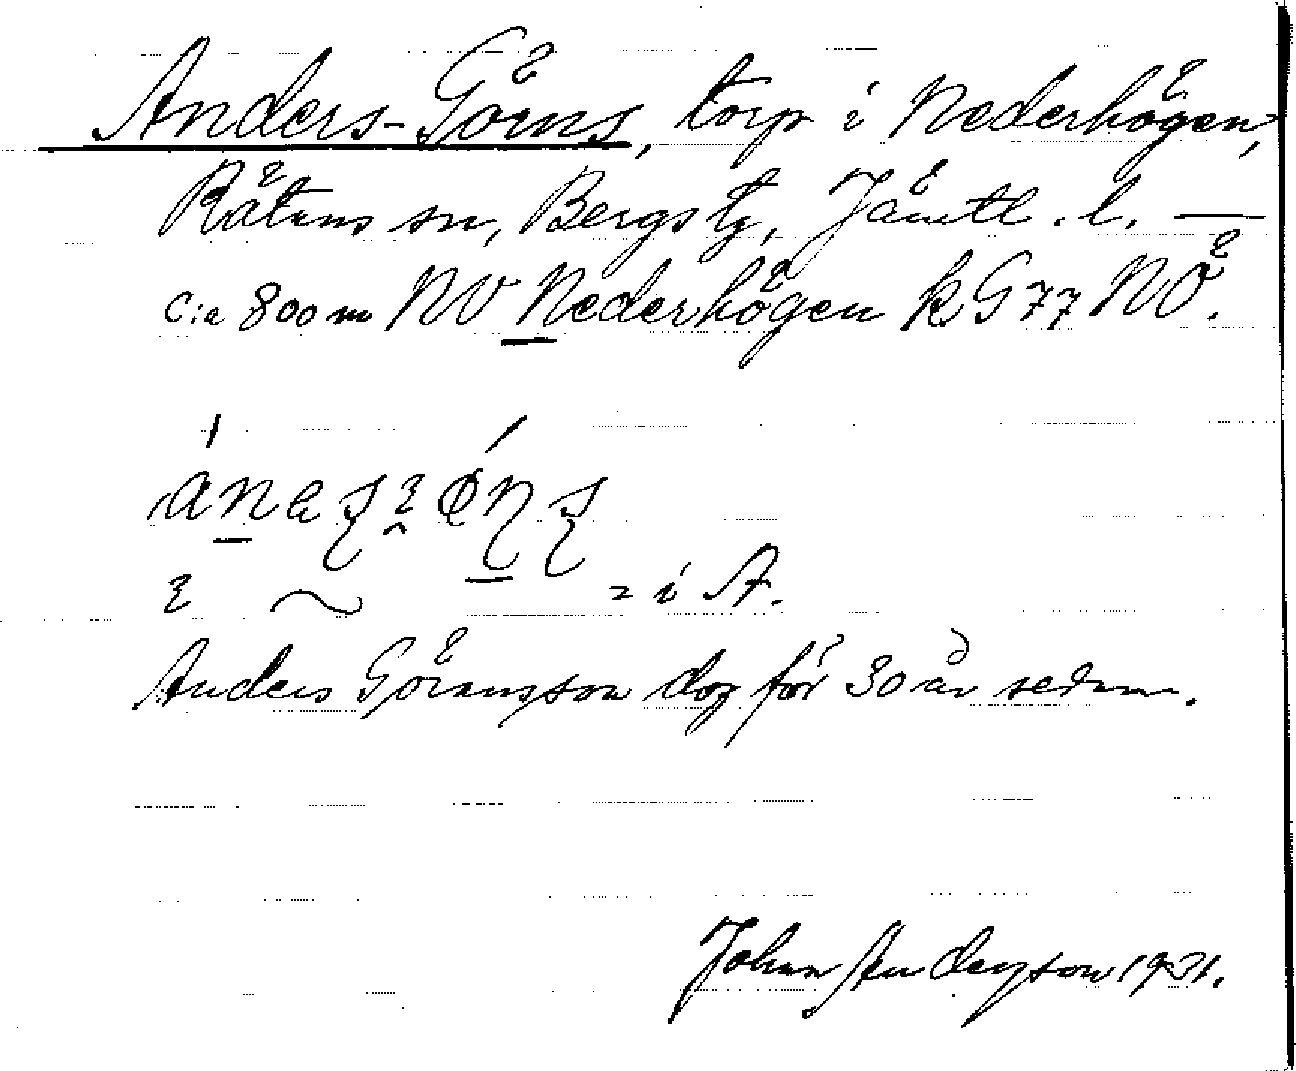 Anders-Görns, torp i Nederhögen,
Rätans sn, Bergs tg, Jämtl. l. —
c:a 800 m NV Nederhögen kG77 NÖ.
= i A.
Anders Göransson dog för 30 år sedan.
Johan Andersson 1931.